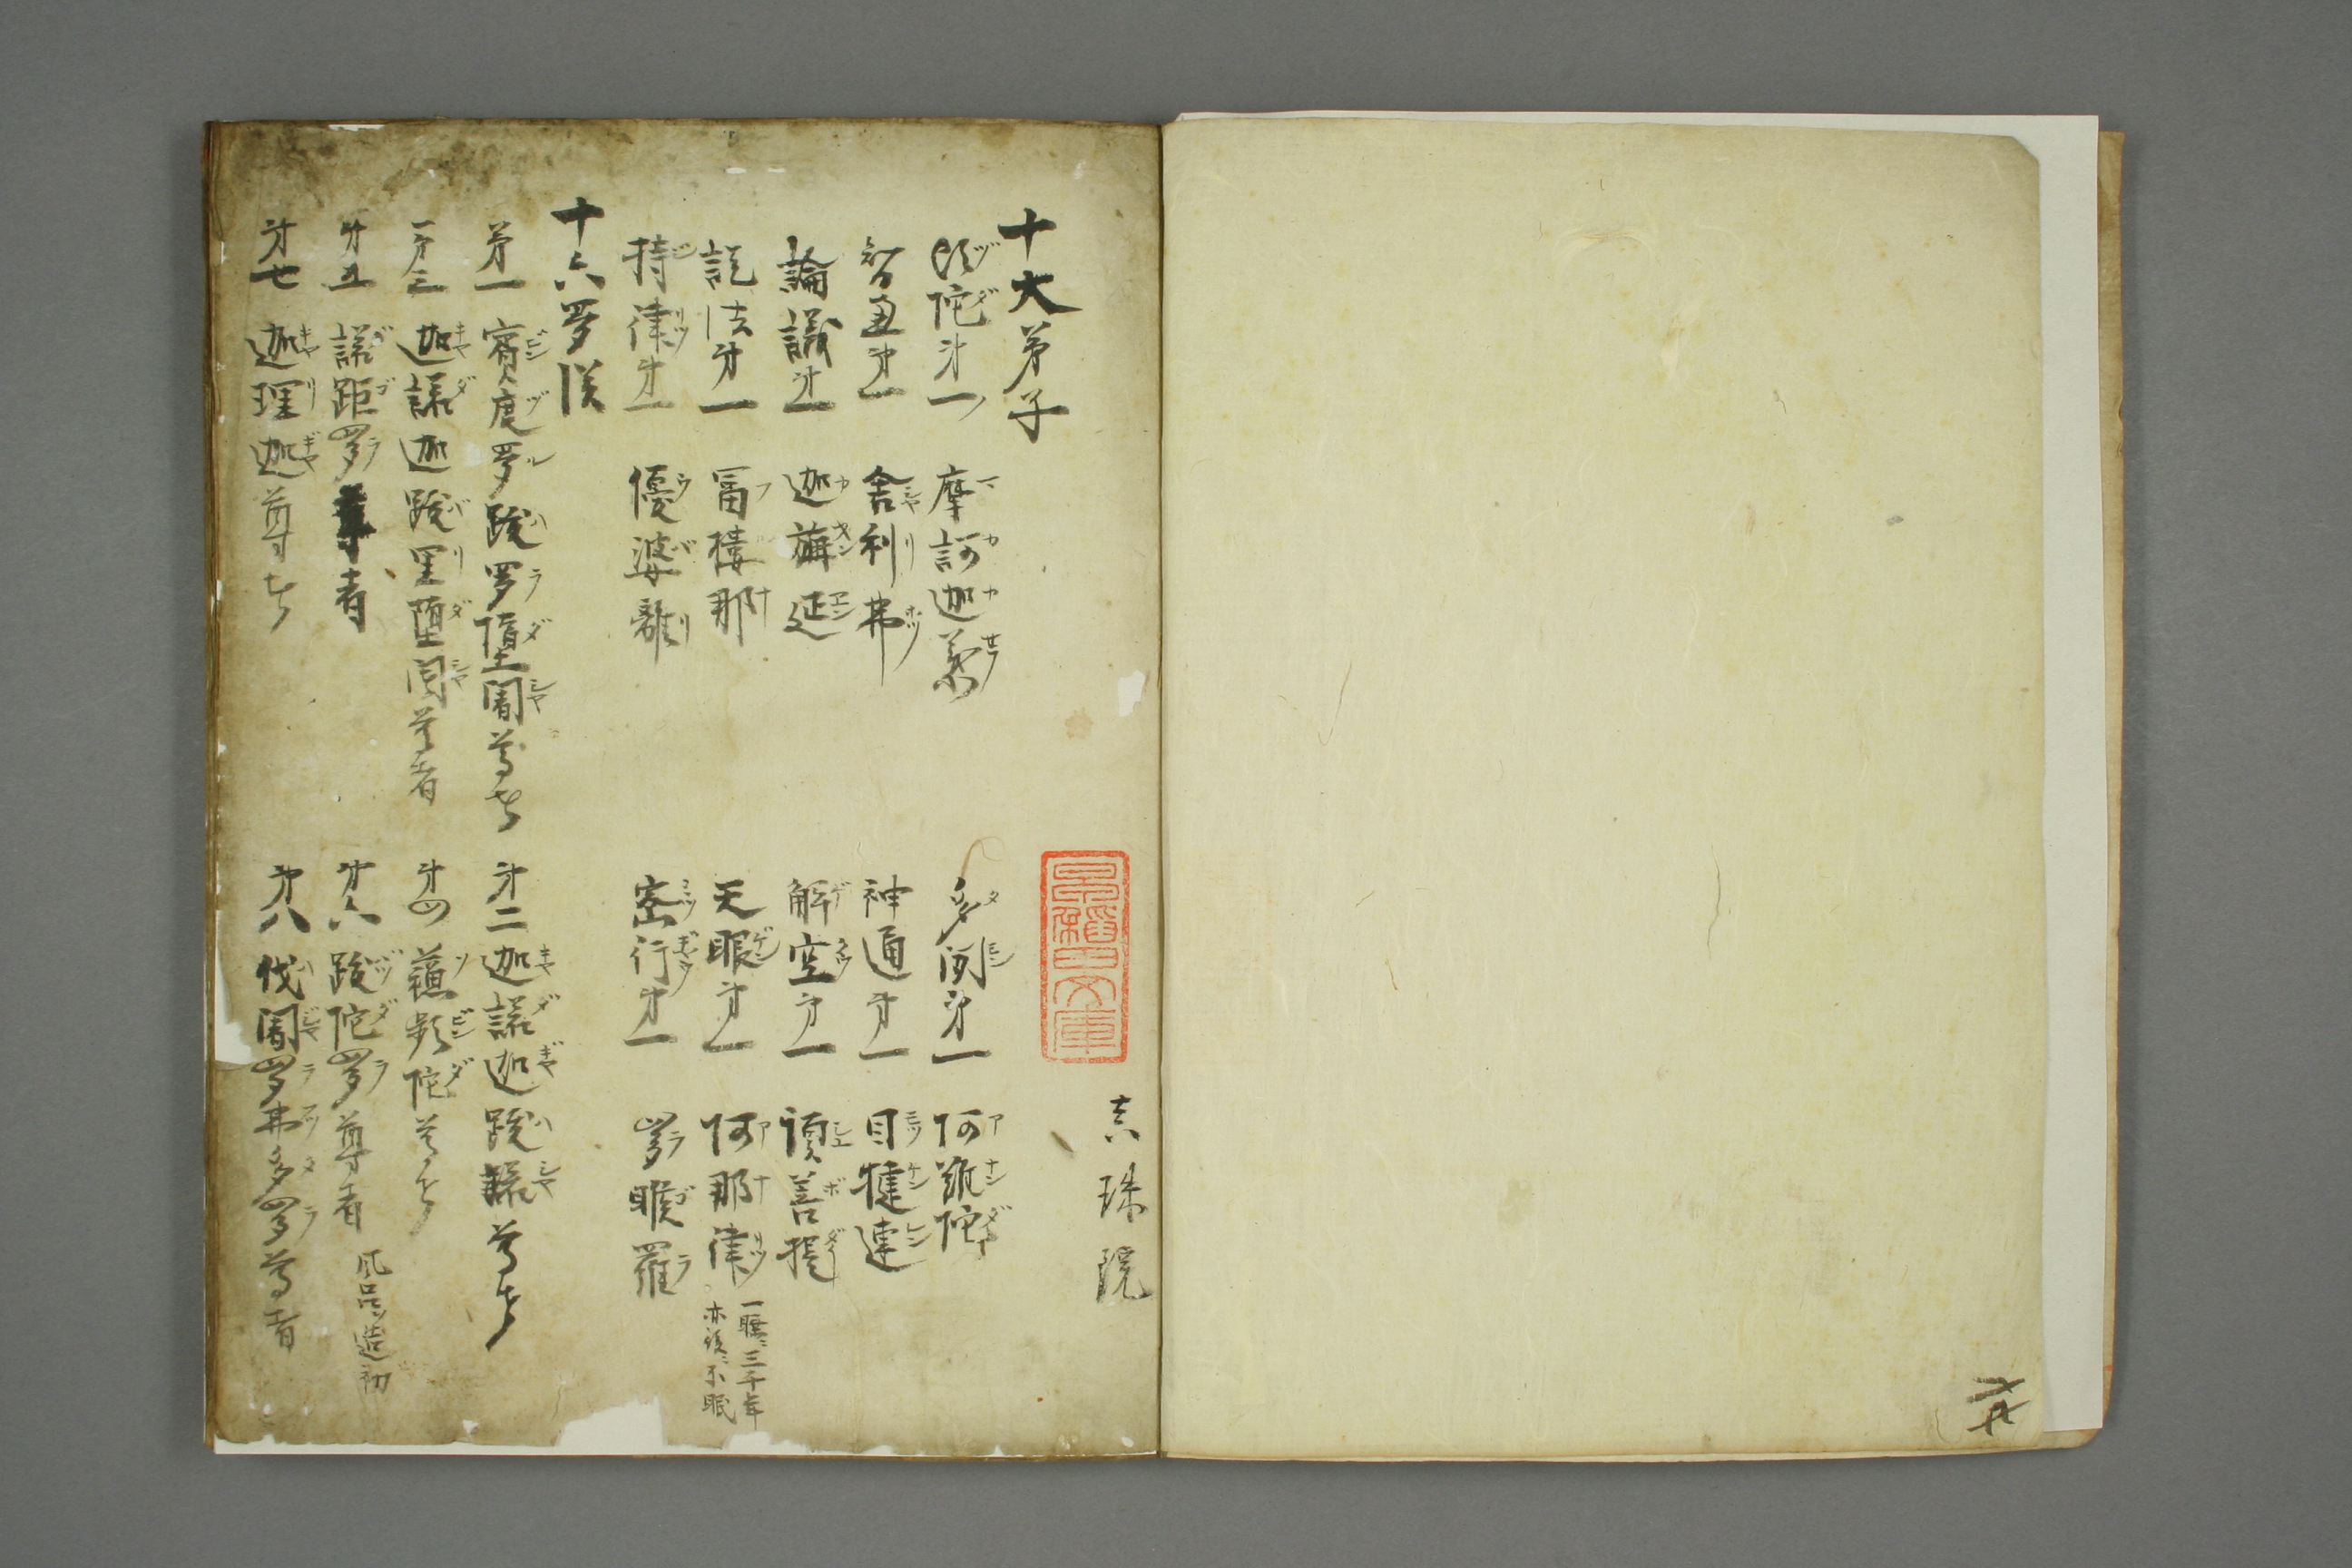 十大弟子
頭陀第一 摩訶迦葉 多聞第一 阿難陀
智惠第一 舍利弗 神通第一 目犍連
論議第一 迦旃延 解空第一 須菩提
説法第一 冨樓那 天眼第一 阿那律 一睡三千年 亦後不眠
持律第一 優婆離 密行第一 羅睺羅
十六羅漢
第一 賓度羅跋羅墮闍尊者 第二 迦諾迦跋蹉尊者
第三 迦諾迦跋里墮闍尊者 第四 蘓頻陀尊者
第五 諾距羅尊者 第六 跋陀羅尊者 風呂造初
第七 迦理迦尊者 第八 伐闍羅弗多羅尊者
珠院